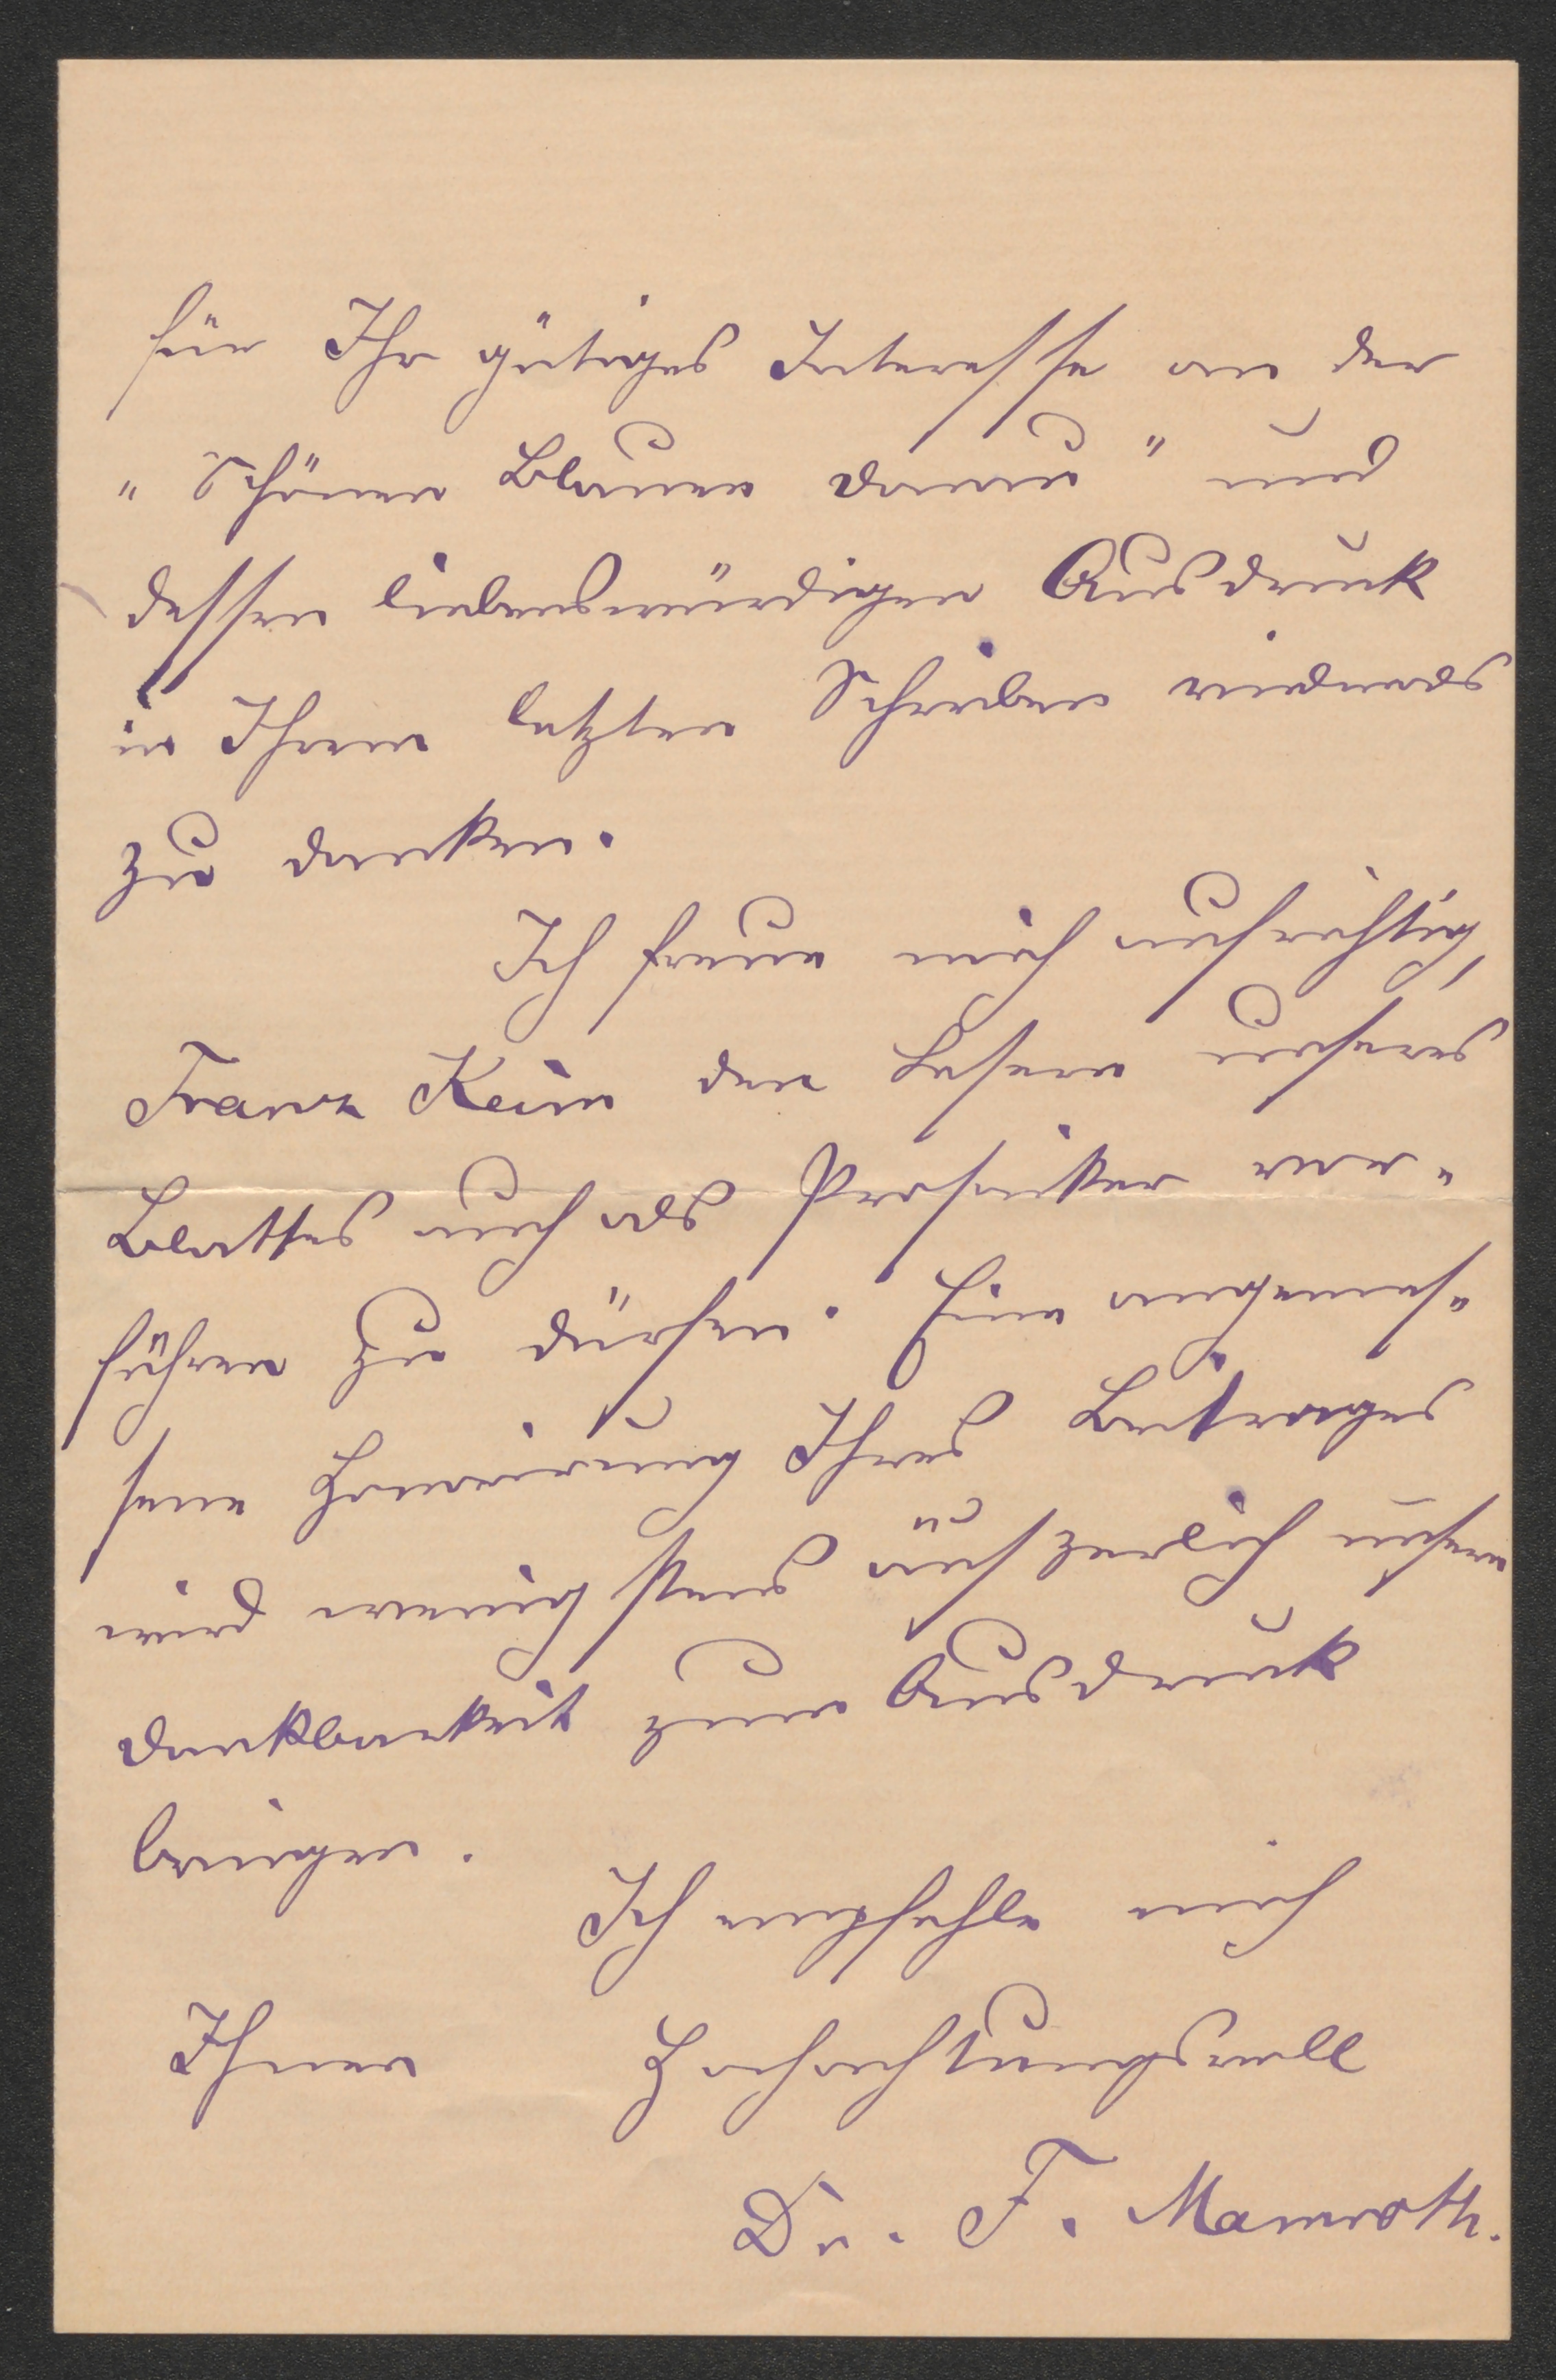 für Ihr gütiges Interesse an der
„Schönen Blauen Donau" und
dessen liebenswürdigen Ausdruck
in Ihrem letzten Schreiben
zu danken.
Ich freue mich aufrichtig,
Franz Keim den Lesern unseres
Blattes auch als Prosaiker vor-
führen zu dürfen. Eine angemes-
sene Honorirung Ihres Beitrages
wird wenigstens äuszerlich unsere
Dankbarkeit zum Ausdruck
bringen.
Ich empfehle mich
Ihnen Hochachtungsvoll
Dr. F. Mamroth.